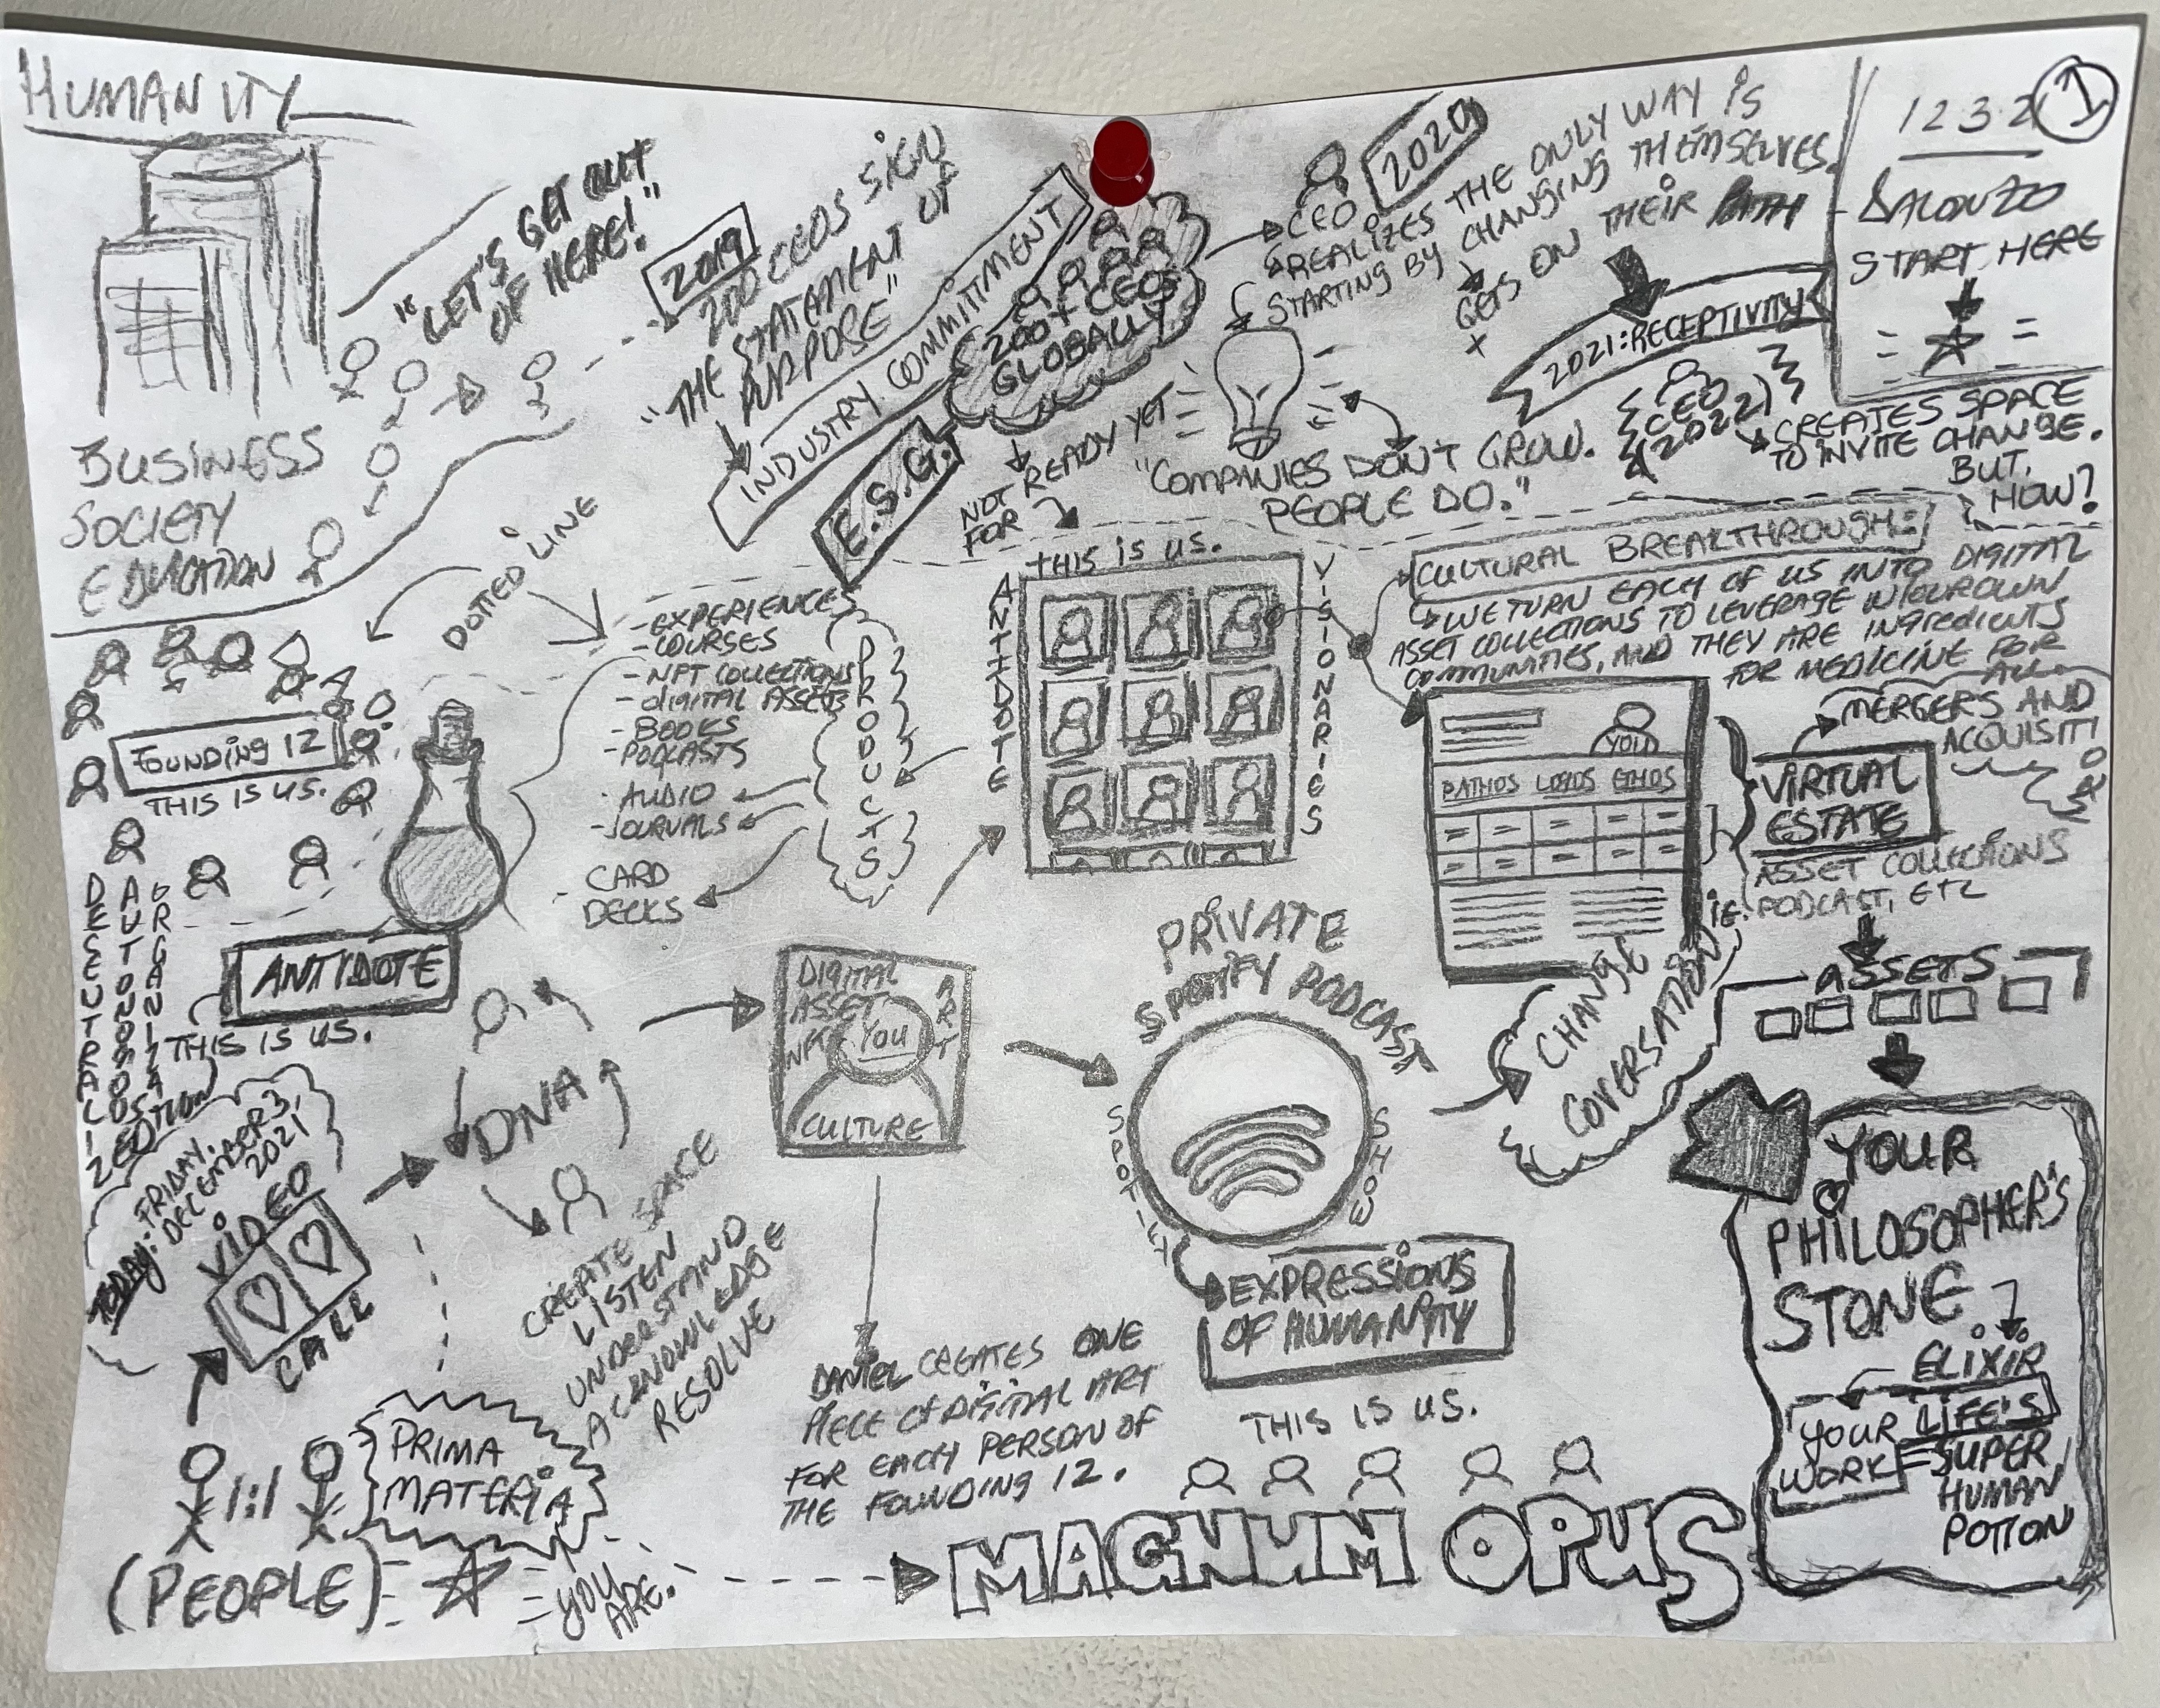 HUMANITY
BUSINESS
SOCIETY
EDUCATION
"LET'S GET OUT
OF HERE!"
2019
200 CEOS SIGN
"THE STATAMENT OF
PURPOSE"
INDUSTRY COMMITTMENT
E.S.G.
200+ CEOS
GLOBALLY
NOT READY YET
FOR
CEO
2020
REALIZES THE ONLY WAY IS
STARTING BY CHANGING THEMSELVES.
+ GETS ON THEIR PATH
2021: RECEPTIVITY
CEO
(2022)
CREATES SPACE
TO INVITE CHANGE.
BUT,
HOW?
"COMPANIES DON'T GROW.
PEOPLE DO."
1232
1
DALONZO
START HERE
DOTTED LINE
FOUNDING 12
THIS IS US.
DECEUTRALI
ZED
AUTONOMOUS
ORGANIZATION
ANTIDOTE
THIS IS US.
- EXPERIENCES
- COURSES
- NFT COLLECTIONS
- DIGITAL ASSETS
- BOOKS
- PODCASTS
- AUDIO
- JOURNALS
- CARD
DECKS
PRODUCTS
THIS IS US.
ANTIDOTE
VISIONARIES
CULTURAL BREAKTHROUGH:
WE TURN EACH OF US INTO DIGITAL
ASSET COLLECTIONS TO LEVERAGE IN OUR OWN
COMMUNITIES, AND THEY ARE INGREDIENTS
FOR MEDICINE FOR
ALL.
YOU
PATHOS LOGOS ETHOS
MERGERS AND
ACQUISITIONS
VIRTUAL
ESTATE
ASSET COLLECTIONS
IE. PODCAST, ETC
ASSETS
YOUR
PHILOSOPHER'S
STONE
ELIXIR
YOUR LIFE'S
WORK = SUPER
HUMAN
POTION
TODAY: FRIDAY,
DECEMBER 3,
2021
VIDEO
CALL
1:1
(PEOPLE)
PRIMA
MATERIA
YOU
ARE.
DNA
CREATE SPACE
LISTEN
UNDERSTAND
ACKNOWLEDGE
RESOLVE
DIGITAL
ASSET
NFT
YOU
ART
CULTURE
DANIEL CREATES ONE
PIECE OF DIGITAL ART
FOR EACH PERSON OF
THE FOUNDING 12.
PRIVATE
SPOTIFY PODCAST
SPOTIFY
SHOW
EXPRESSIONS
OF HUMANITY
THIS IS US.
CHANGE
COVERSATION
MAGNUM OPUS